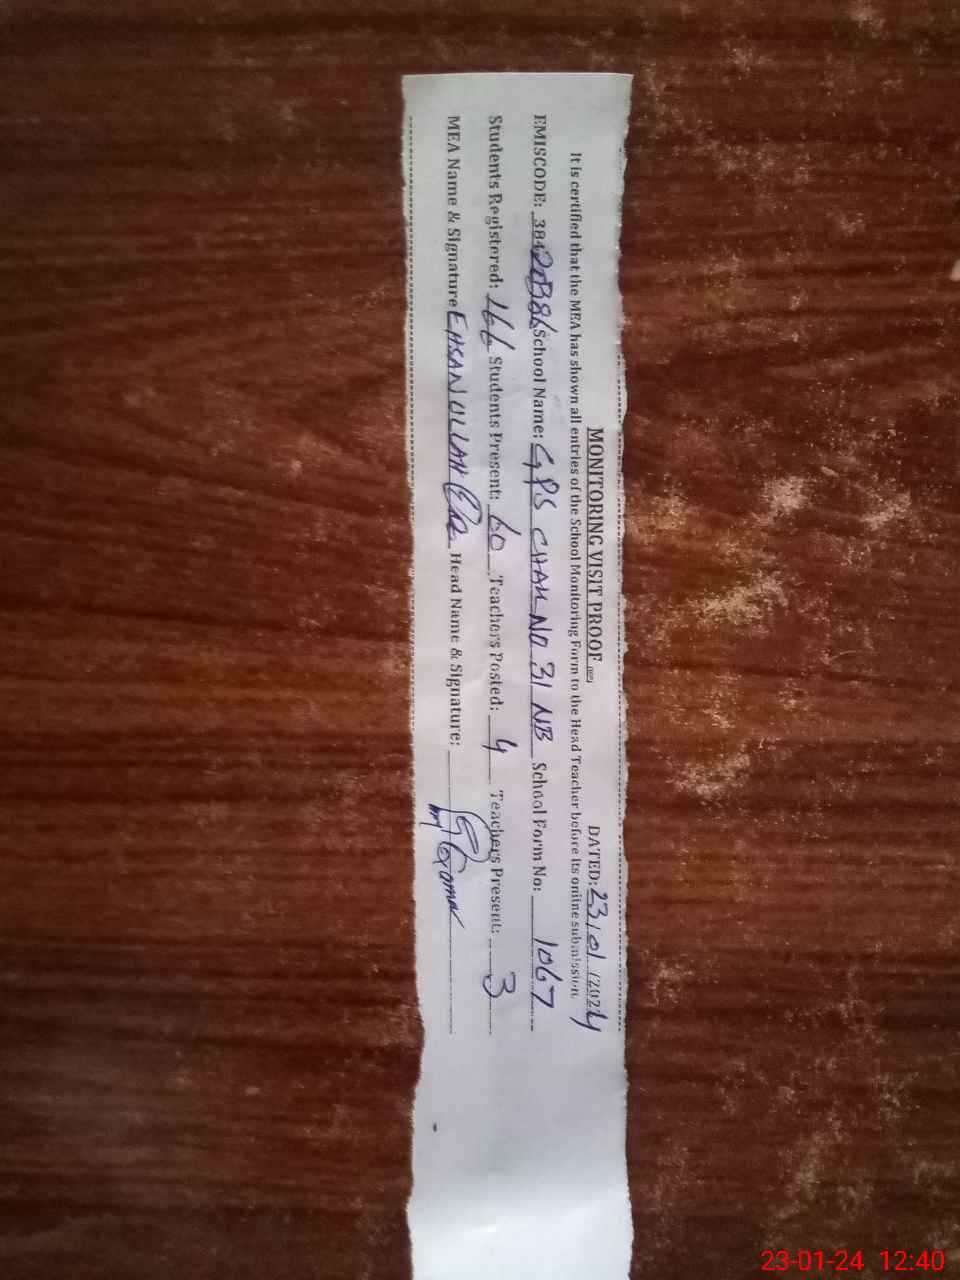 MONITORING VISIT PROOF DATED: 23/01/2024
It is certified that the MEA has shown all entries of the School Monitoring Form to the Head Teacher before its online submission.
EMISCODE: 38420386 School Name: GPS CHAK NO 31 NB School Form No: 1067
Students Registered: 166 Students Present: 60, Teachers Posted: 4 Teachers Present: 3
MEA Name & Signature EHSAN ULLAH Head Name & Signature:
23-01-24 12:40